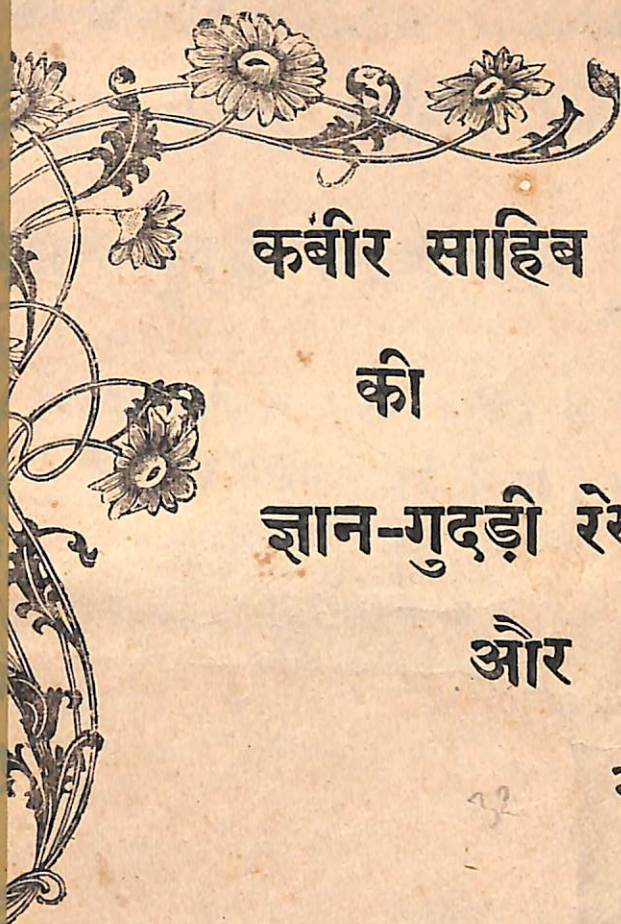 कबीर साहिब
की
ज्ञान-गुदड़ी
और
32